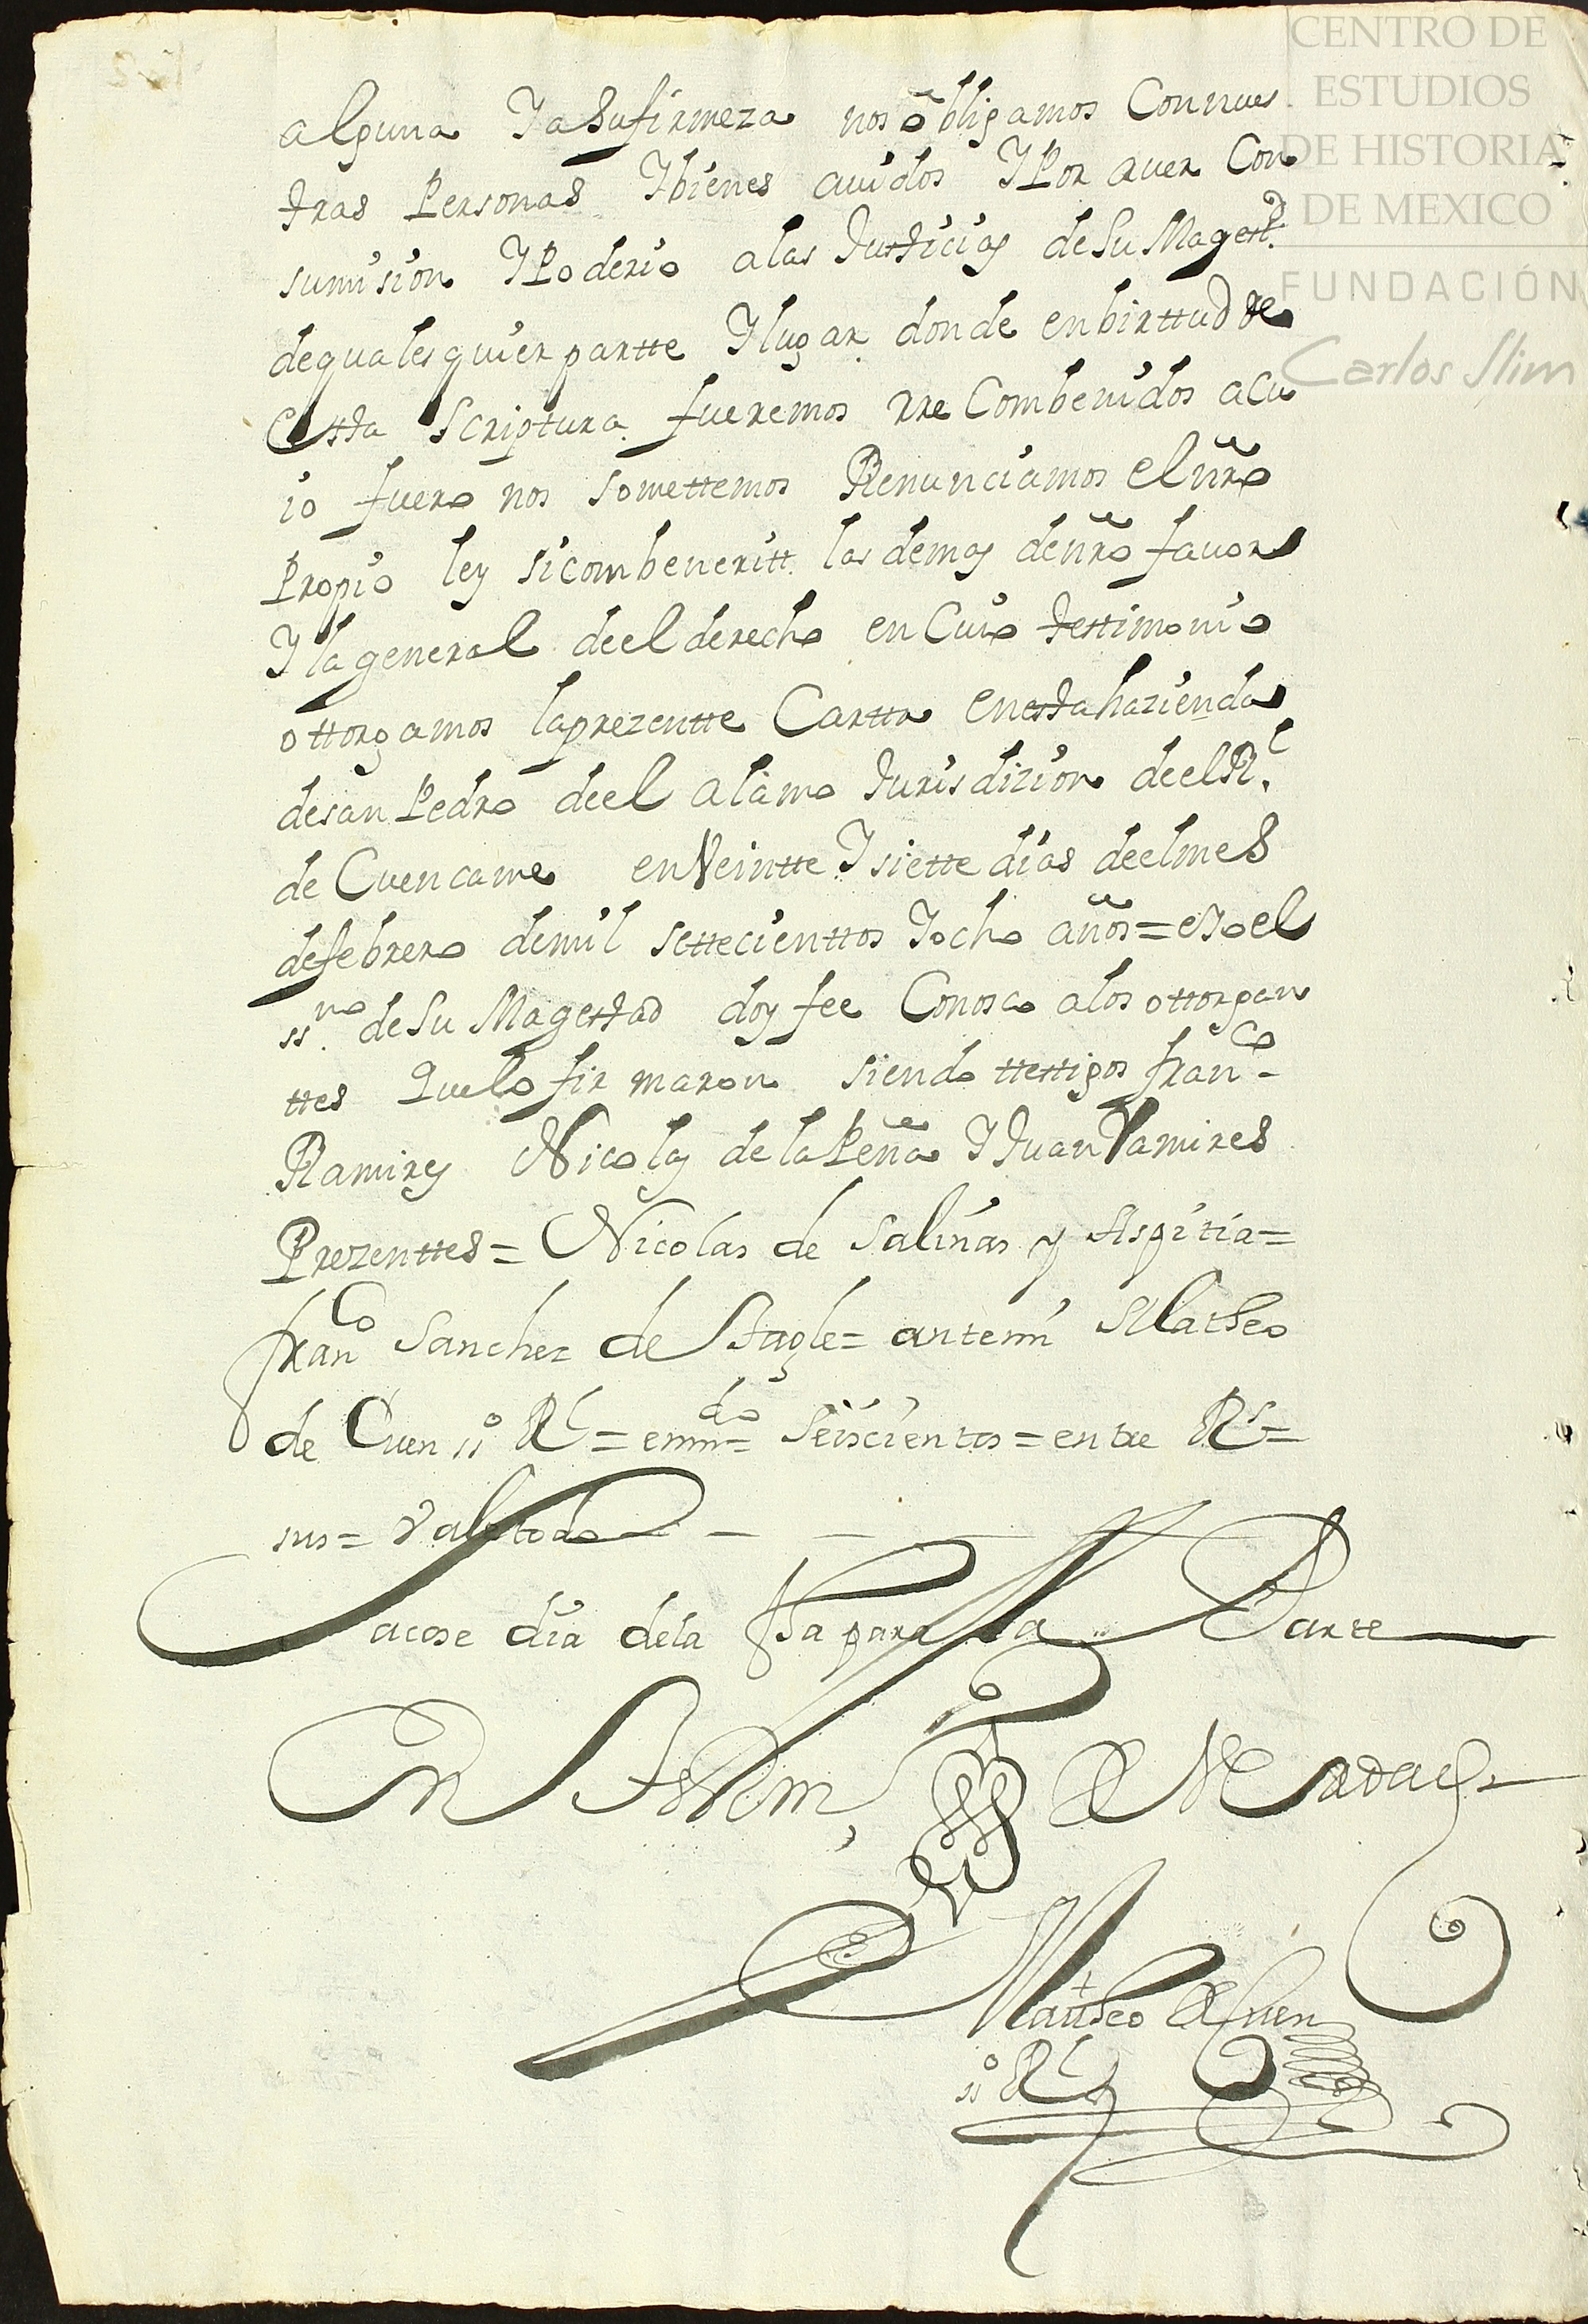 CENTRO DE
ESTUDIOS
DE HISTORIA
DE MEXICO
FUNDACIÓN
Carlos Slim
alguna Ja Sufirmeza nos obligamos Connues
tras Personas Jbienes auidos JPor auer Con
sumision JPoderio alas Justicias deSu Magestd.
dequalesquier partte Jlugar donde enbirttud de
Estta Scriptura fueremos rreCombenidos aCu
io fuero nos somettemos Renunciamos el nro
Propio ley sicombeneritt las demas denro fauor
Jla general deel derecho enCuio testimonio
ottorgamos laprezentte Cartta Enestahazienda
desan Pedro deel alamo Jurisdizion deel Rl.
de Cuencame enVeintte Jsiette dias deelmes
defebrero demil settecienttos Jocho años = eJoel
ssno. deSu Magestad doy fee Conosco alos ottorgan
ttes Quelo firmaron siendo ttestigos franco
Ramires Nicolas dela Peña JJuan Ramires
Prezenttes = Nicolas de Salinas y Aspitia =
franco Sanchez de Tagle = antemi Matheo
de Cuen sso Rl = enmdo = Seiscientos = entre Rs =
sus = Vale todo
Sacose dia dela fha para la Parte
En testim, de Verdad
Matheo de Cuen
sso Rl